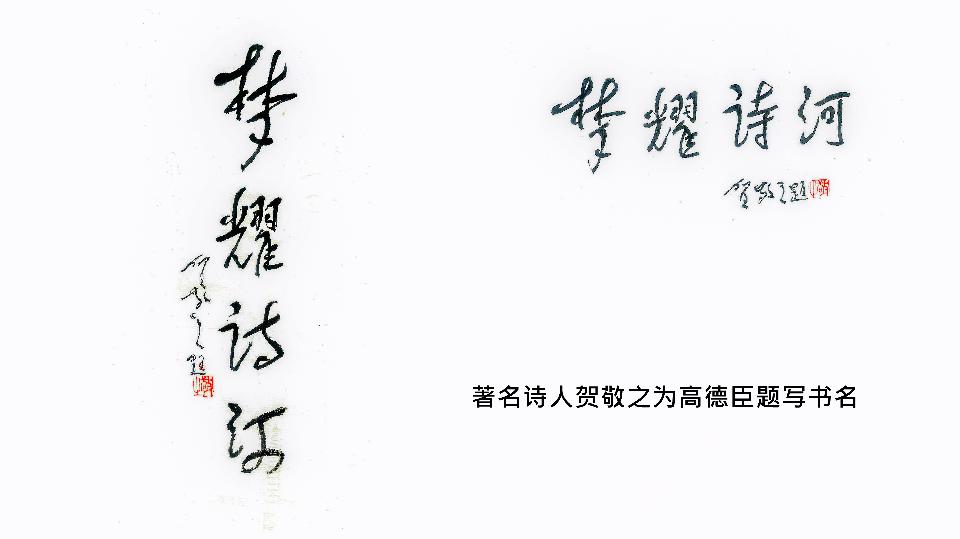 梦耀诗河
贺敬之题
梦耀诗河
贺敬之题
著名诗人贺敬之为高德臣题写书名